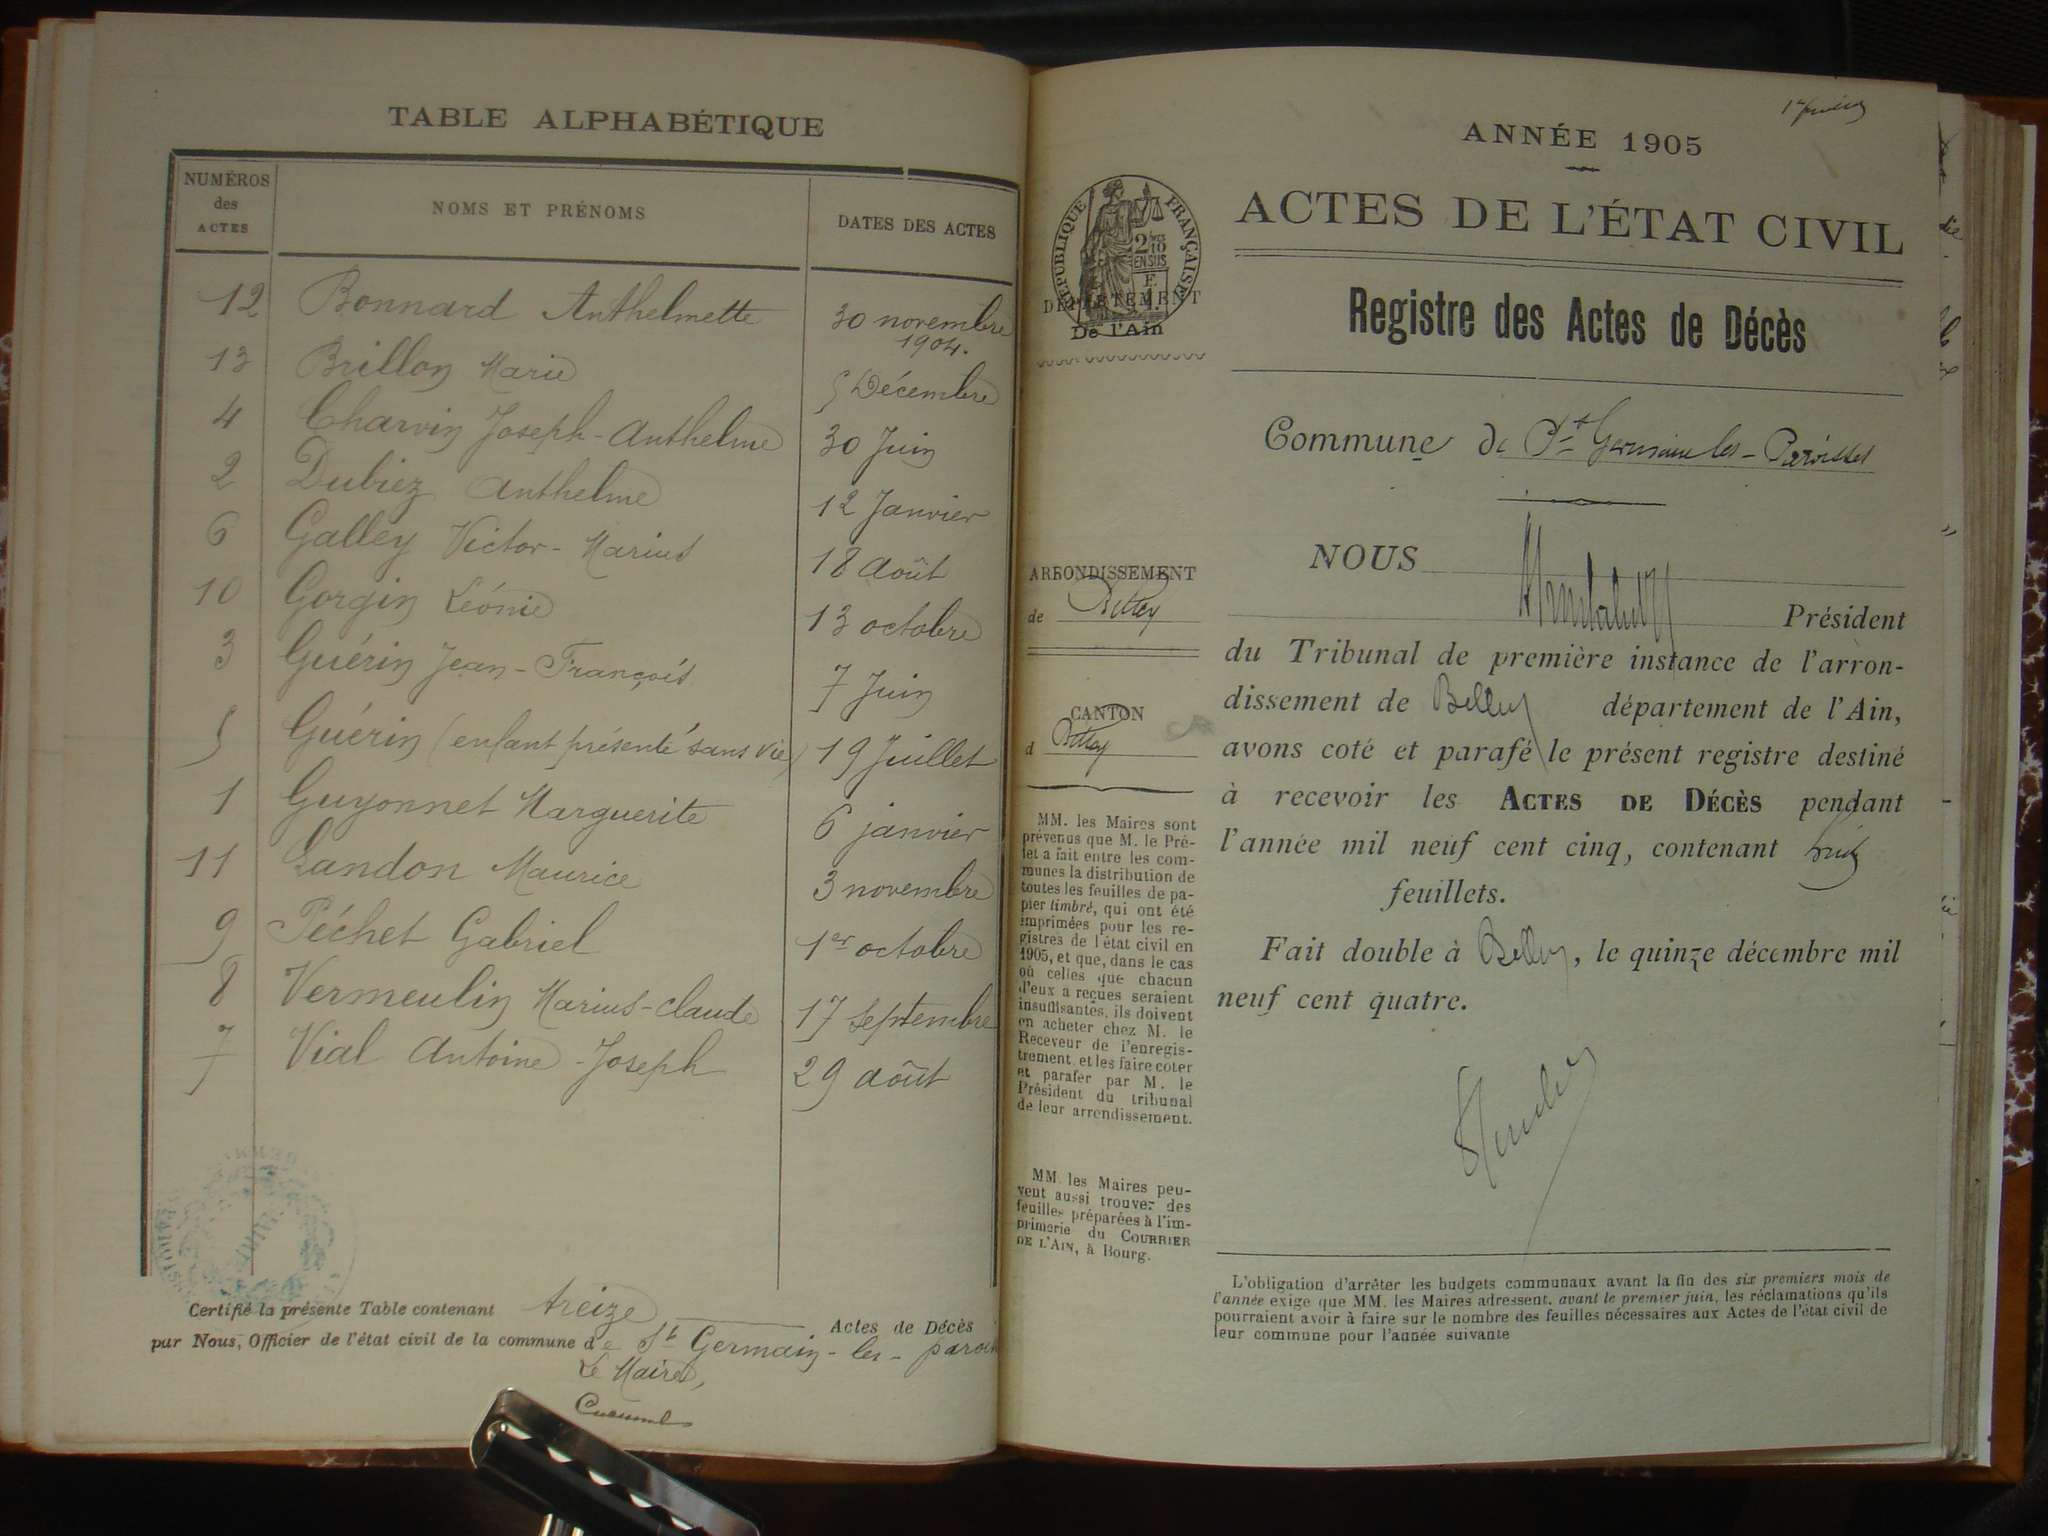 TABLE ALPHABÉTIQUE
NUMÉROS des ACTES
NOMS ET PRÉNOMS
DATES DES ACTES
12 Bonnard Anthelmette 30 novembre 1904.
13 Brillon Marie 5 Décembre
4 Charvin Joseph-Anthelme 30 Juin
2 Dubiez Anthelme 12 Janvier
6 Galley Victor-Marius 18 août
10 Gorgin Léonie 13 octobre
3 Guérin Jean-François 7 Juin
5 Guérin (enfant présenté sans vie) 19 Juillet
1 Guyonnet Marguerite 6 janvier
11 Landon Maurice 3 novembre
9 Péchet Gabriel 1er octobre
8 Vermeulin Marius-claude 17 septembre
7 Vial Antoine-Joseph 29 août
Certifié la présente Table contenant treize Actes de Décès
par Nous, Officier de l'état civil de la commune de St Germain-les-parois
Le Maire,
ANNÉE 1905
ACTES DE L'ÉTAT CIVIL
RÉPUBLIQUE FRANÇAISE
DÉPARTEMENT
De l'Ain
Registre des Actes de Décès
Commune de St Germain les-Paroisses
ARRONDISSEMENT
de Belley
CANTON
d Belley
MM. les Maires sont
prévenus que M. le Pré-
fet a fait entre les com-
munes la distribution de
toutes les feuilles de pa-
pier timbré, qui ont été
imprimées pour les re-
gistres de l'état civil en
1905, et que, dans le cas
où celles que chacun
d'eux a reçues seraient
insuffisantes, ils doivent
en acheter chez M. le
Receveur de l'enregis-
trement, et les faire coter
et parafer par M. le
Président du tribunal
de leur arrondissement.
MM. les Maires peu-
vent aussi trouver des
feuilles préparées à l'im-
primerie du COURRIER
DE L'AIN, à Bourg.
NOUS
Président
du Tribunal de première instance de l'arron-
dissement de Belley département de l'Ain,
avons coté et parafé le présent registre destiné
à recevoir les ACTES DE DÉCÈS pendant
l'année mil neuf cent cinq, contenant
feuillets.
Fait double à Belley, le quinze décembre mil
neuf cent quatre.
L'obligation d'arrêter les budgets communaux avant la fin des six premiers mois de
l'année exige que MM. les Maires adressent, avant le premier juin, les réclamations qu'ils
pourraient avoir à faire sur le nombre des feuilles nécessaires aux Actes de l'état civil de
leur commune pour l'année suivante